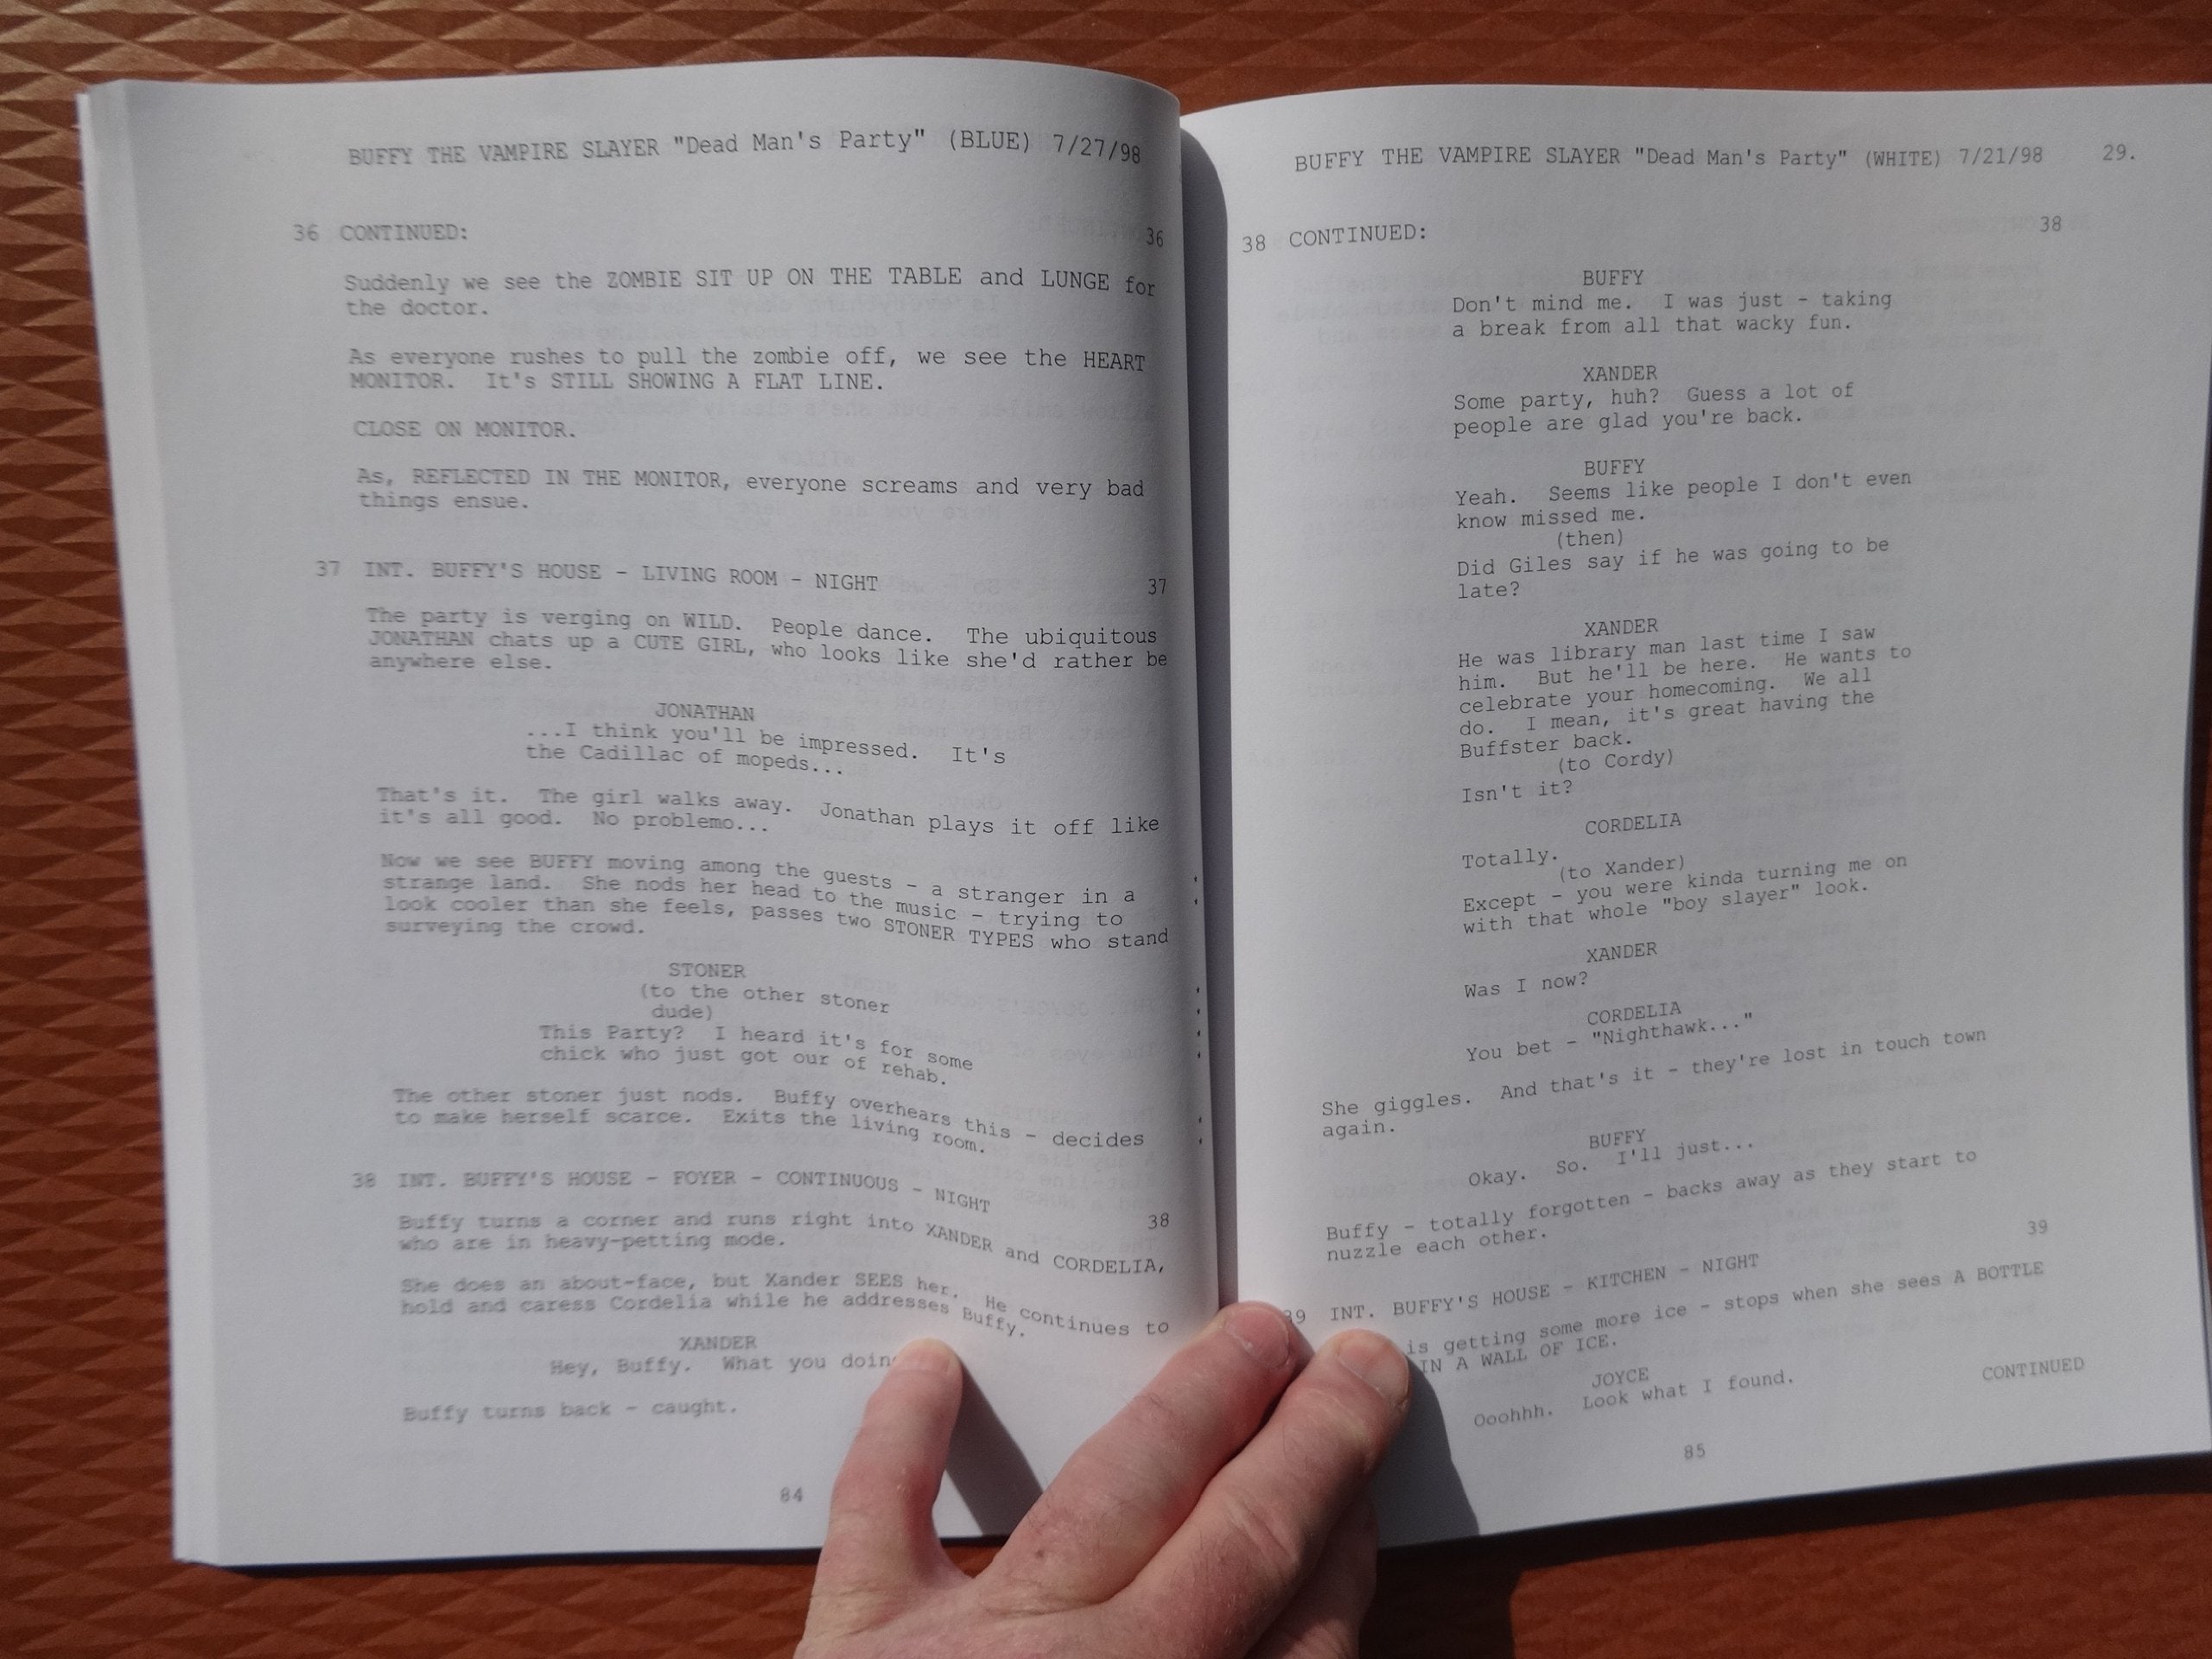 BUFFY THE VAMPIRE SLAYER "Dead Man's Party" (BLUE) 7/27/98
36 CONTINUED: 36
Suddenly we see the ZOMBIE SIT UP ON THE TABLE and LUNGE for
the doctor.
As everyone rushes to pull the zombie off, we see the HEART
MONITOR. It's STILL SHOWING A FLAT LINE.
CLOSE ON MONITOR.
As, REFLECTED IN THE MONITOR, everyone screams and very bad
things ensue.
37 INT. BUFFY'S HOUSE - LIVING ROOM - NIGHT 37
The party is verging on WILD. People dance. The ubiquitous
JONATHAN chats up a CUTE GIRL, who looks like she'd rather be
anywhere else.
JONATHAN
...I think you'll be impressed. It's
the Cadillac of mopeds...
That's it. The girl walks away. Jonathan plays it off like
it's all good. No problemo...
Now we see BUFFY moving among the guests - a stranger in a
strange land. She nods her head to the music - trying to
look cooler than she feels, passes two STONER TYPES who stand
surveying the crowd.
STONER
(to the other stoner
dude)
This Party? I heard it's for some
chick who just got our of rehab.
The other stoner just nods. Buffy overhears this - decides
to make herself scarce. Exits the living room.
38 INT. BUFFY'S HOUSE - FOYER - CONTINUOUS - NIGHT 38
Buffy turns a corner and runs right into XANDER and CORDELIA,
who are in heavy-petting mode.
She does an about-face, but Xander SEES her. He continues to
hold and caress Cordelia while he addresses Buffy.
XANDER
Hey, Buffy. What you
Buffy turns back - caught.
84
BUFFY THE VAMPIRE SLAYER "Dead Man's Party" (WHITE) 7/21/98 29.
38 CONTINUED: 38
BUFFY
Don't mind me. I was just - taking
a break from all that wacky fun.
XANDER
Some party, huh? Guess a lot of
people are glad you're back.
BUFFY
Yeah. Seems like people I don't even
know missed me.
(then)
Did Giles say if he was going to be
late?
XANDER
He was library man last time I saw
him. But he'll be here. He wants to
celebrate your homecoming. We all
do. I mean, it's great having the
Buffster back.
(to Cordy)
Isn't it?
CORDELIA
Totally.
(to Xander)
Except - you were kinda turning me on
with that whole "boy slayer" look.
XANDER
Was I now?
CORDELIA
You bet - "Nighthawk..."
She giggles. And that's it - they're lost in touch town
again.
BUFFY
Okay. So. I'll just...
Buffy - totally forgotten - backs away as they start to
nuzzle each other.
39 INT. BUFFY'S HOUSE - KITCHEN - NIGHT 39
is getting some more ice - stops when she sees A BOTTLE
IN A WALL OF ICE.
JOYCE
Ooohhh. Look what I found.
CONTINUED
85